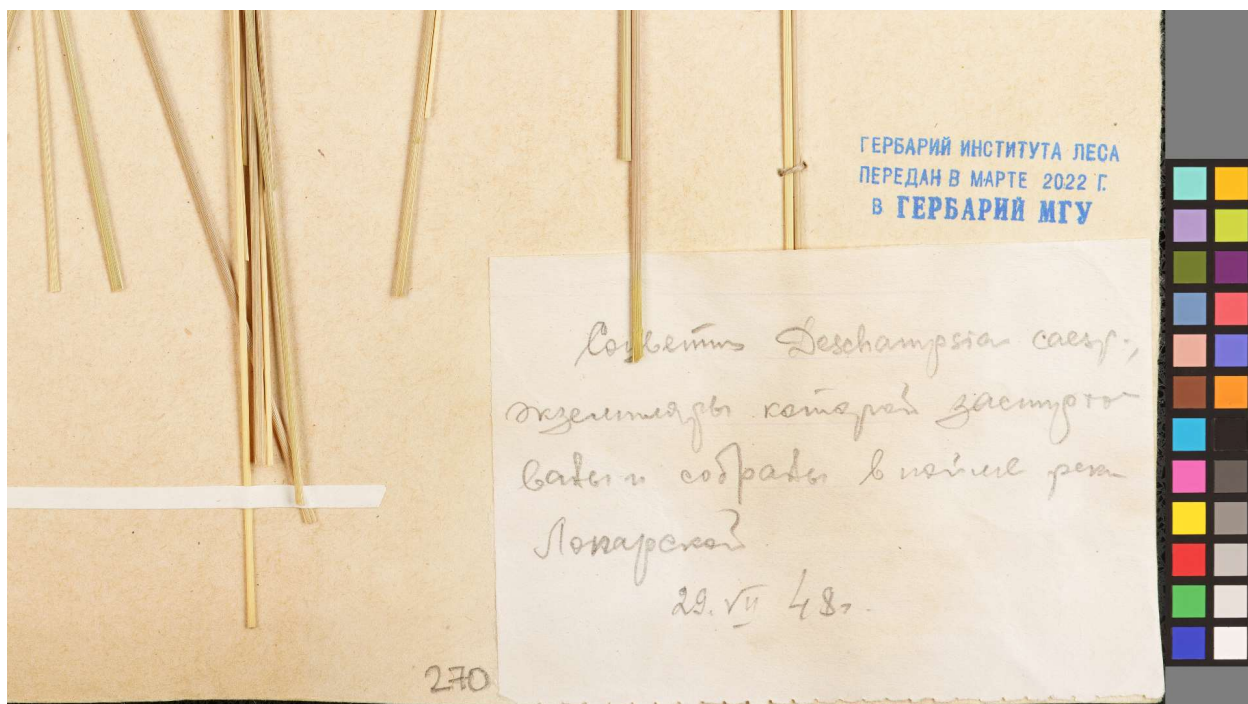 ГЕРБАРИЙ ИНСТИТУТА ЛЕСА
ПЕРЕДАН В МАРТЕ 2022 Г.
В ГЕРБАРИЙ МГУ
Соцветия Deschampsia caesp.,
экземпляры которой
собраны в пойме реки
Лопарской
29. VII 48г.
270